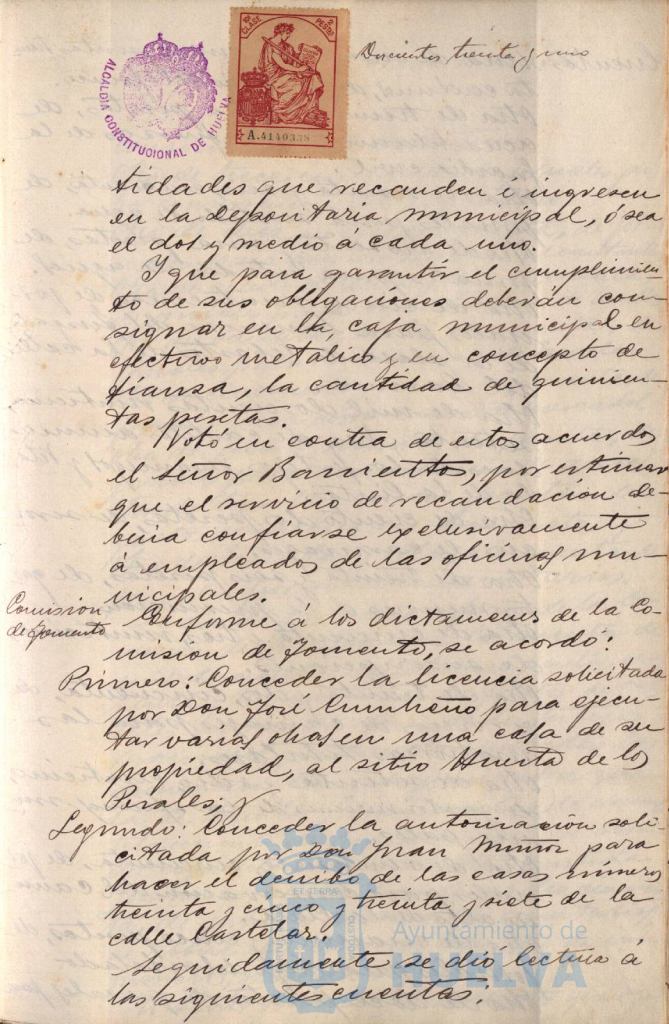 ALCALDÍA CONSTITUCIONAL DE HUELVA
10ª CLASE 2 PESTAS
A.4140338
Doscientos treinta y uno
tidades que recauden é ingresen
en la Depositaria municipal, ó sea
el dos y medio á cada uno.
Y que para garantir el cumplimien-
to de sus obligaciones deberán con-
signar en la caja municipal en
efectivo metalico y en concepto de
fianza, la cantidad de quinien-
tas pesetas.
Votó en contra de estos acuerdos
el Señor Barrientos, por estimar
que el servicio de recaudación de-
biera confiarse exclusivamente
á empleados de las oficinas mu-
nicipales.
Comisión
de Fomento
Conforme á los dictamenes de la Co-
misión de Fomento, se acordó:
Primero: Conceder la licencia solicitada
por Don José Cumbreño para ejecu-
tar varias obras en una casa de su
propiedad, al sitio Huerta de los
Perales; y
Segundo: Conceder la autorización soli-
citada por Don Juan Muñoz para
hacer el derribo de las casas números
treinta y cinco y treinta y siete de la
calle Castelar.
Seguidamente se dió lectura á
las siguientes cuentas:
Ayuntamiento de
HUELVA